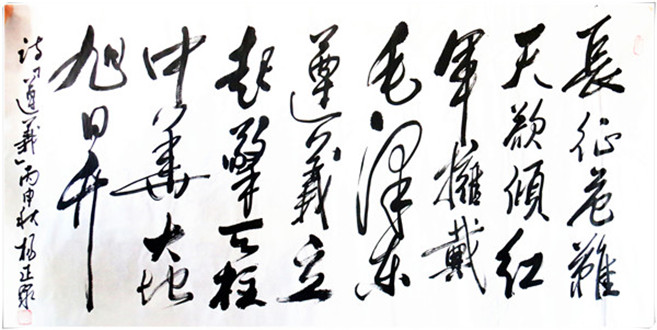 長征危難
天欲傾紅
軍擁戴
毛澤東
遵義立
起擎天柱
中華大地
旭日升
詩「遵義」丙申秋楊正泉